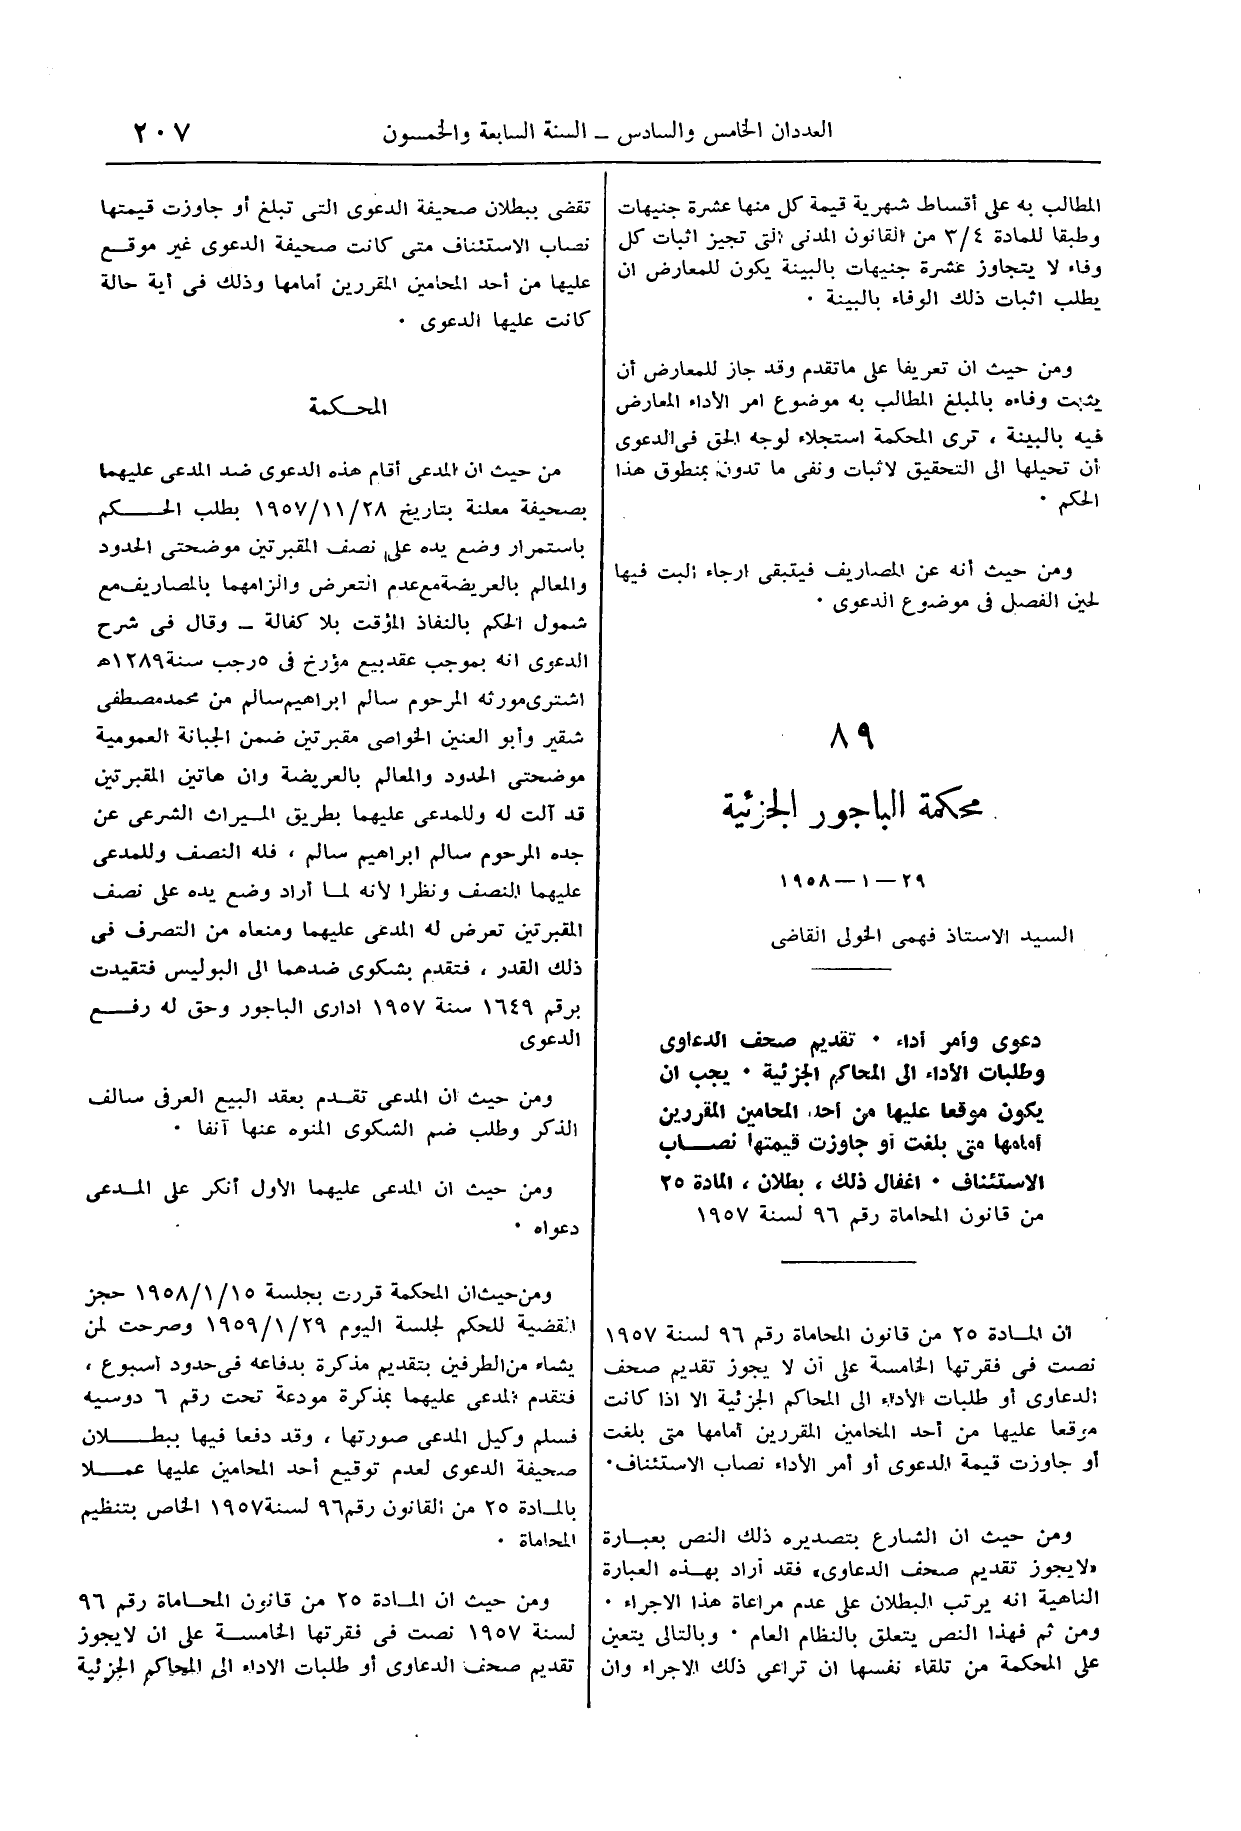 العددان الخامس والسادس ــ السنة السابعة والخمسون
٢٠٧
المطالب به على أقساط شهرية قيمة كل منها عشرة جنيهات
وطبقا للمادة ٣/٤ من القانون المدنى التى تجيز اثبات كل
وفاء لا يتجاوز عشرة جنيهات بالبينة يكون للمعارض ان
يطلب اثبات ذلك الوفاء بالبينة ٠
ومن حيث ان تعريفا على ماتقدم وقد جاز للمعارض أن
يثبت وفاءه بالمبلغ المطالب به موضوع امر الأداء المعارض
فيه بالبينة ، ترى المحكمة استجلاء لوجه الحق فى الدعوى
أن تحيلها الى التحقيق لاثبات ونفى ما تدون بمنطوق هذا
الحكم ٠
ومن حيث أنه عن المصاريف فيتبقى ارجاء البت فيها
لحين الفصل فى موضوع الدعوى ٠
٨٩
محكمة الباجور الجزئية
٢٩ – ١ – ١٩٥٨
السيد الاستاذ فهمى الخولى القاضى
دعوى وأمر أداء ٠ تقديم صحف الدعاوى
وطلبات الأداء الى المحاكم الجزئية ٠ يجب ان
يكون موقعا عليها من أحد المحامين المقررين
أمامها متى بلغت أو جاوزت قيمتها نصــاب
الاستئناف ٠ اغفال ذلك ، بطلان ، المادة ٢٥
من قانون المحاماة رقم ٩٦ لسنة ١٩٥٧
ان المــادة ٢٥ من قانون المحاماة رقم ٩٦ لسنة ١٩٥٧
نصت فى فقرتها الخامسة على أن لا يجوز تقديم صحف
الدعاوى أو طلبات الأداء الى المحاكم الجزئية الا اذا كانت
موقعا عليها من أحد المحامين المقررين أمامها متى بلغت
أو جاوزت قيمة الدعوى أو أمر الأداء نصاب الاستئناف٠
ومن حيث ان الشارع بتصديره ذلك النص بعبــارة
«لايجوز تقديم صحف الدعاوى» فقد أراد بهــذه العبارة
الناهية انه يرتب البطلان على عدم مراعاة هذا الاجراء ٠
ومن ثم فهذا النص يتعلق بالنظام العام ٠ وبالتالى يتعين
على المحكمة من تلقاء نفسها ان تراعى ذلك الاجراء وان
تقضى ببطلان صحيفة الدعوى التى تبلغ أو جاوزت قيمتها
نصاب الاستئناف متى كانت صحيفة الدعوى غير موقــع
عليها من أحد المحامين المقررين أمامها وذلك فى أية حالة
كانت عليها الدعوى ٠
المحــكمة
من حيث ان المدعى أقام هذه الدعوى ضد المدعى عليهما
بصحيفة معلنة بتاريخ ١٩٥٧/١١/٢٨ بطلب الحــــكم
باستمرار وضع يده على نصف المقبرتين موضحتى الحدود
والمعالم بالعريضة مع عدم التعرض والزامهما بالمصاريف مع
شمول الحكم بالنفاذ المؤقت بلا كفالة ــ وقال فى شرح
الدعوى انه بموجب عقد بيع مؤرخ فى ٥ رجب سنة ١٢٨٩هـ
اشترى مورثه المرحوم سالم ابراهيم سالم من محمد مصطفى
شقير وأبو العنين الخواصى مقبرتين ضمن الجبانة العمومية
موضحتى الحدود والمعالم بالعريضة وان هاتين المقبرتين
قد آلت له وللمدعى عليهما بطريق المــيراث الشرعى عن
جده المرحوم سالم ابراهيم سالم ، فله النصف وللمدعى
عليهما النصف ونظرا لأنه لمــا أراد وضع يده على نصف
المقبرتين تعرض له المدعى عليهما ومنعاه من التصرف فى
ذلك القدر ، فتقدم بشكوى ضدهما الى البوليس فتقيدت
برقم ١٦٤٩ سنة ١٩٥٧ ادارى الباجور وحق له رفــــع
الدعوى
ومن حيث ان المدعى تقــدم بعقد البيع العرفى سالف
الذكر وطلب ضم الشكوى المنوه عنها آنفا ٠
ومن حيث ان المدعى عليهما الأول أنكر على المــدعى
دعواه ٠
ومن حيث ان المحكمة قررت بجلسة ١٩٥٨/١/١٥ حجز
القضية للحكم لجلسة اليوم ١٩٥٩/١/٢٩ وصرحت لمن
يشاء من الطرفين بتقديم مذكرة بدفاعه فى حدود أسبوع ،
فتقدم المدعى عليهما بمذكرة مودعة تحت رقم ٦ دوسيه
فسلم وكيل المدعى صورتها ، وقد دفعا فيها ببطــــلان
صحيفة الدعوى لعدم توقيع أحد المحامين عليها عمــلا
بالمــادة ٢٥ من القانون رقم ٩٦ لسنة ١٩٥٧ الخاص بتنظيم
المحاماة ٠
ومن حيث ان المــادة ٢٥ من قانون المحــاماة رقم ٩٦
لسنة ١٩٥٧ نصت فى فقرتها الخامســة على ان لايجوز
تقديم صحف الدعاوى أو طلبات الاداء الى المحاكم الجزئية